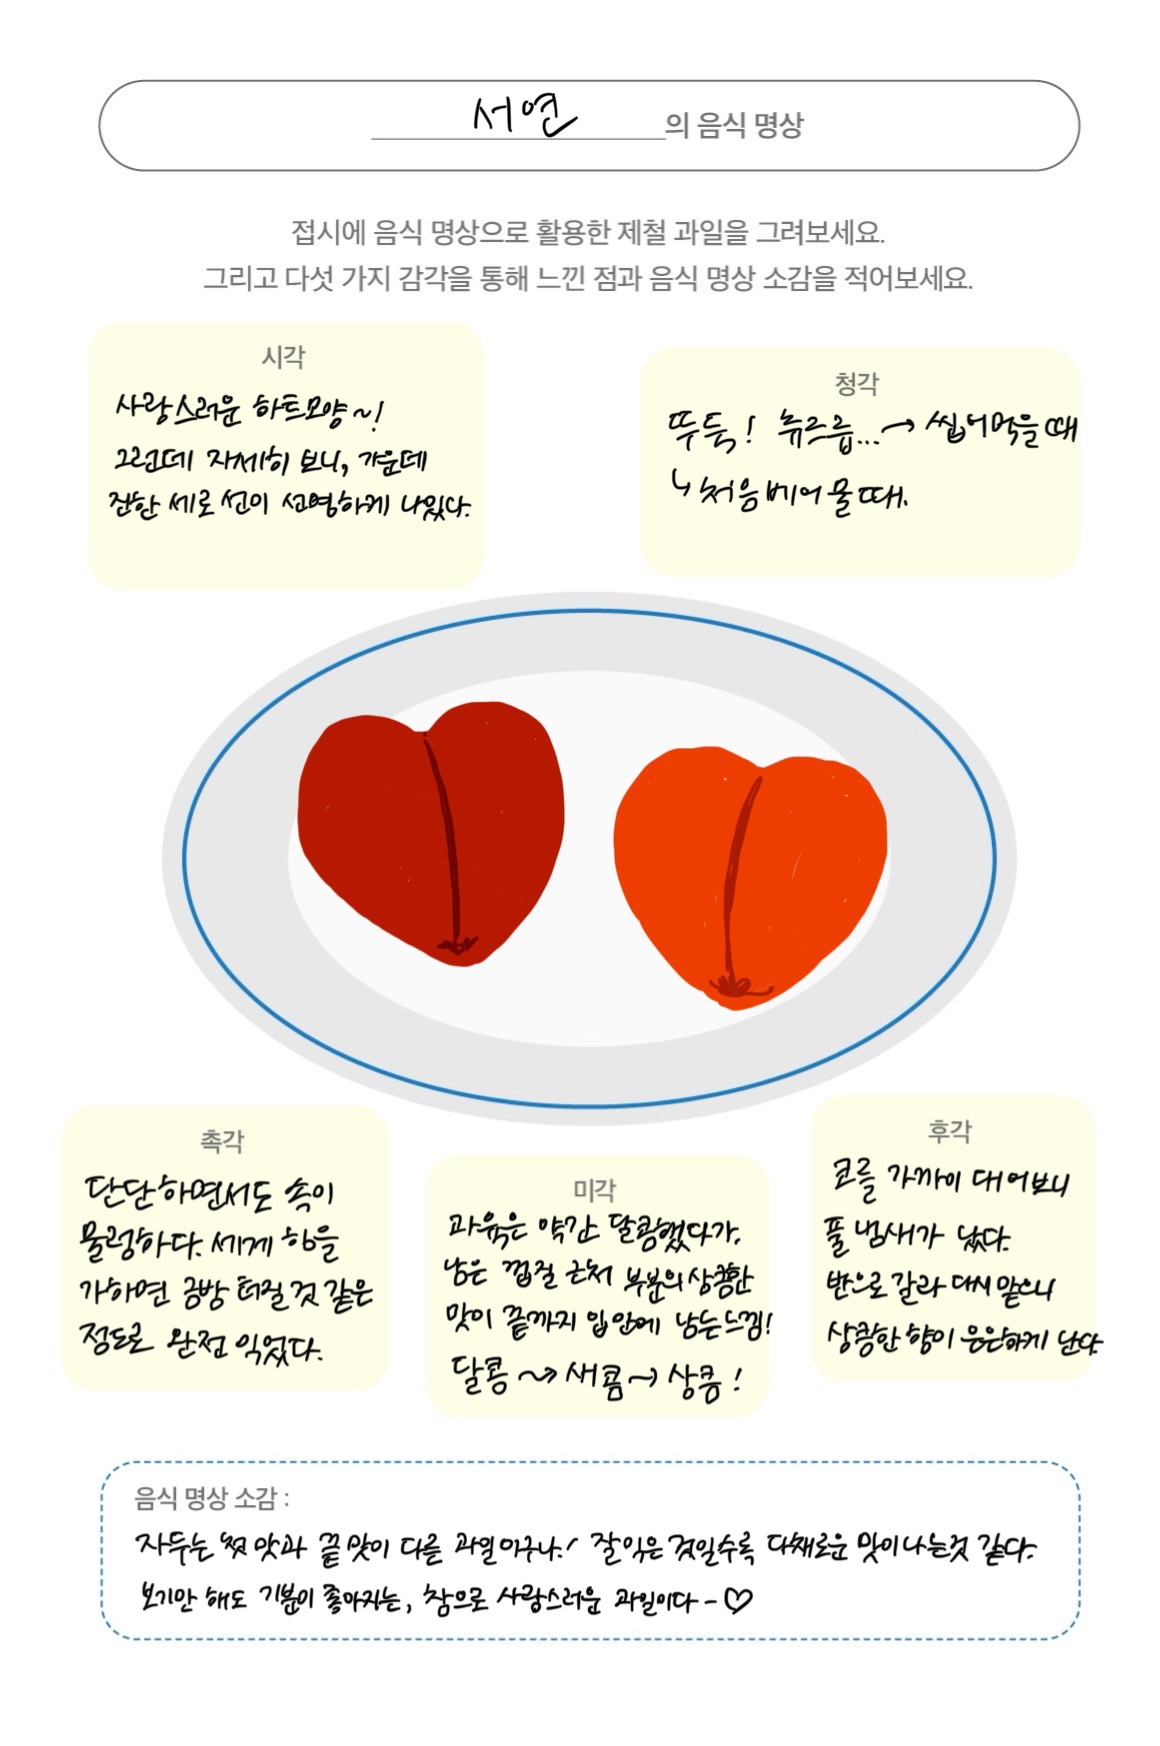 서연의 음식 명상
접시에 음식 명상으로 활용한 제철 과일을 그려보세요.
그리고 다섯 가지 감각을 통해 느낀 점과 음식 명상 소감을 적어보세요.
시각
사랑스러운 하트모양~!
그런데 자세히 보니, 가운데
진한 세로 선이 선명하게 나있다.
청각
뚜둑! 츄르릅...→ 씹어먹을 때
↳ 처음 베어 물 때.
촉각
단단하면서도 속이
물렁하다. 세게 힘을
가하면 금방 터질 것 같은
정도로 완전 익었다.
미각
과육은 약간 달콤했다가,
남은 껍질 근처 부분의 상큼한
맛이 끝까지 입 안에 남는 느낌!
달콤 → 새콤 → 상큼!
후각
코를 가까이 대어보니
풀 냄새가 났다.
반으로 갈라 다시 맡으니
상큼한 향이 은은하게 난다
음식 명상 소감 :
자두는 첫 맛과 끝 맛이 다른 과일이구나! 잘 익은 것일수록 다채로운 맛이 나는것 같다.
보기만 해도 기분이 좋아지는, 참으로 사랑스러운 과일이다-♡